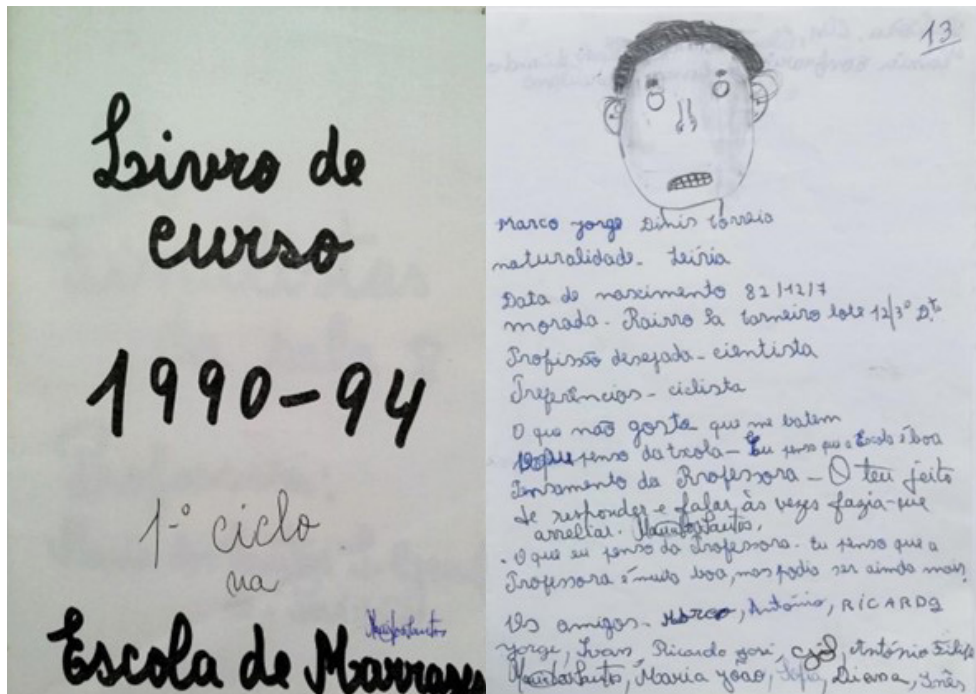 Livro de
curso
1990-94
1º ciclo
na
Escola de Marrazes
13
Marco Jorge Dinis Correia
naturalidade - Leiria
Data de nascimento 82/12/7
morada - Bairro Sá Carneiro lote 12/3º D.to
Profissão desejada - cientista
Preferências - ciclista
O que não gosta que me batem
O que penso da Escola - Eu penso que a Escola é boa
Pensamento da Professora - O teu jeito
de responder e falar, às vezes fazia-me
arreliar.
. O que eu penso da Professora. Eu penso que a
Professora é muito boa, mas podia ser ainda mais.
Os amigos - Marco, António, RICARDO
Jorge, Ivan, Ricardo José, António Filipe
Maria João, Sofia, Diana, Inês